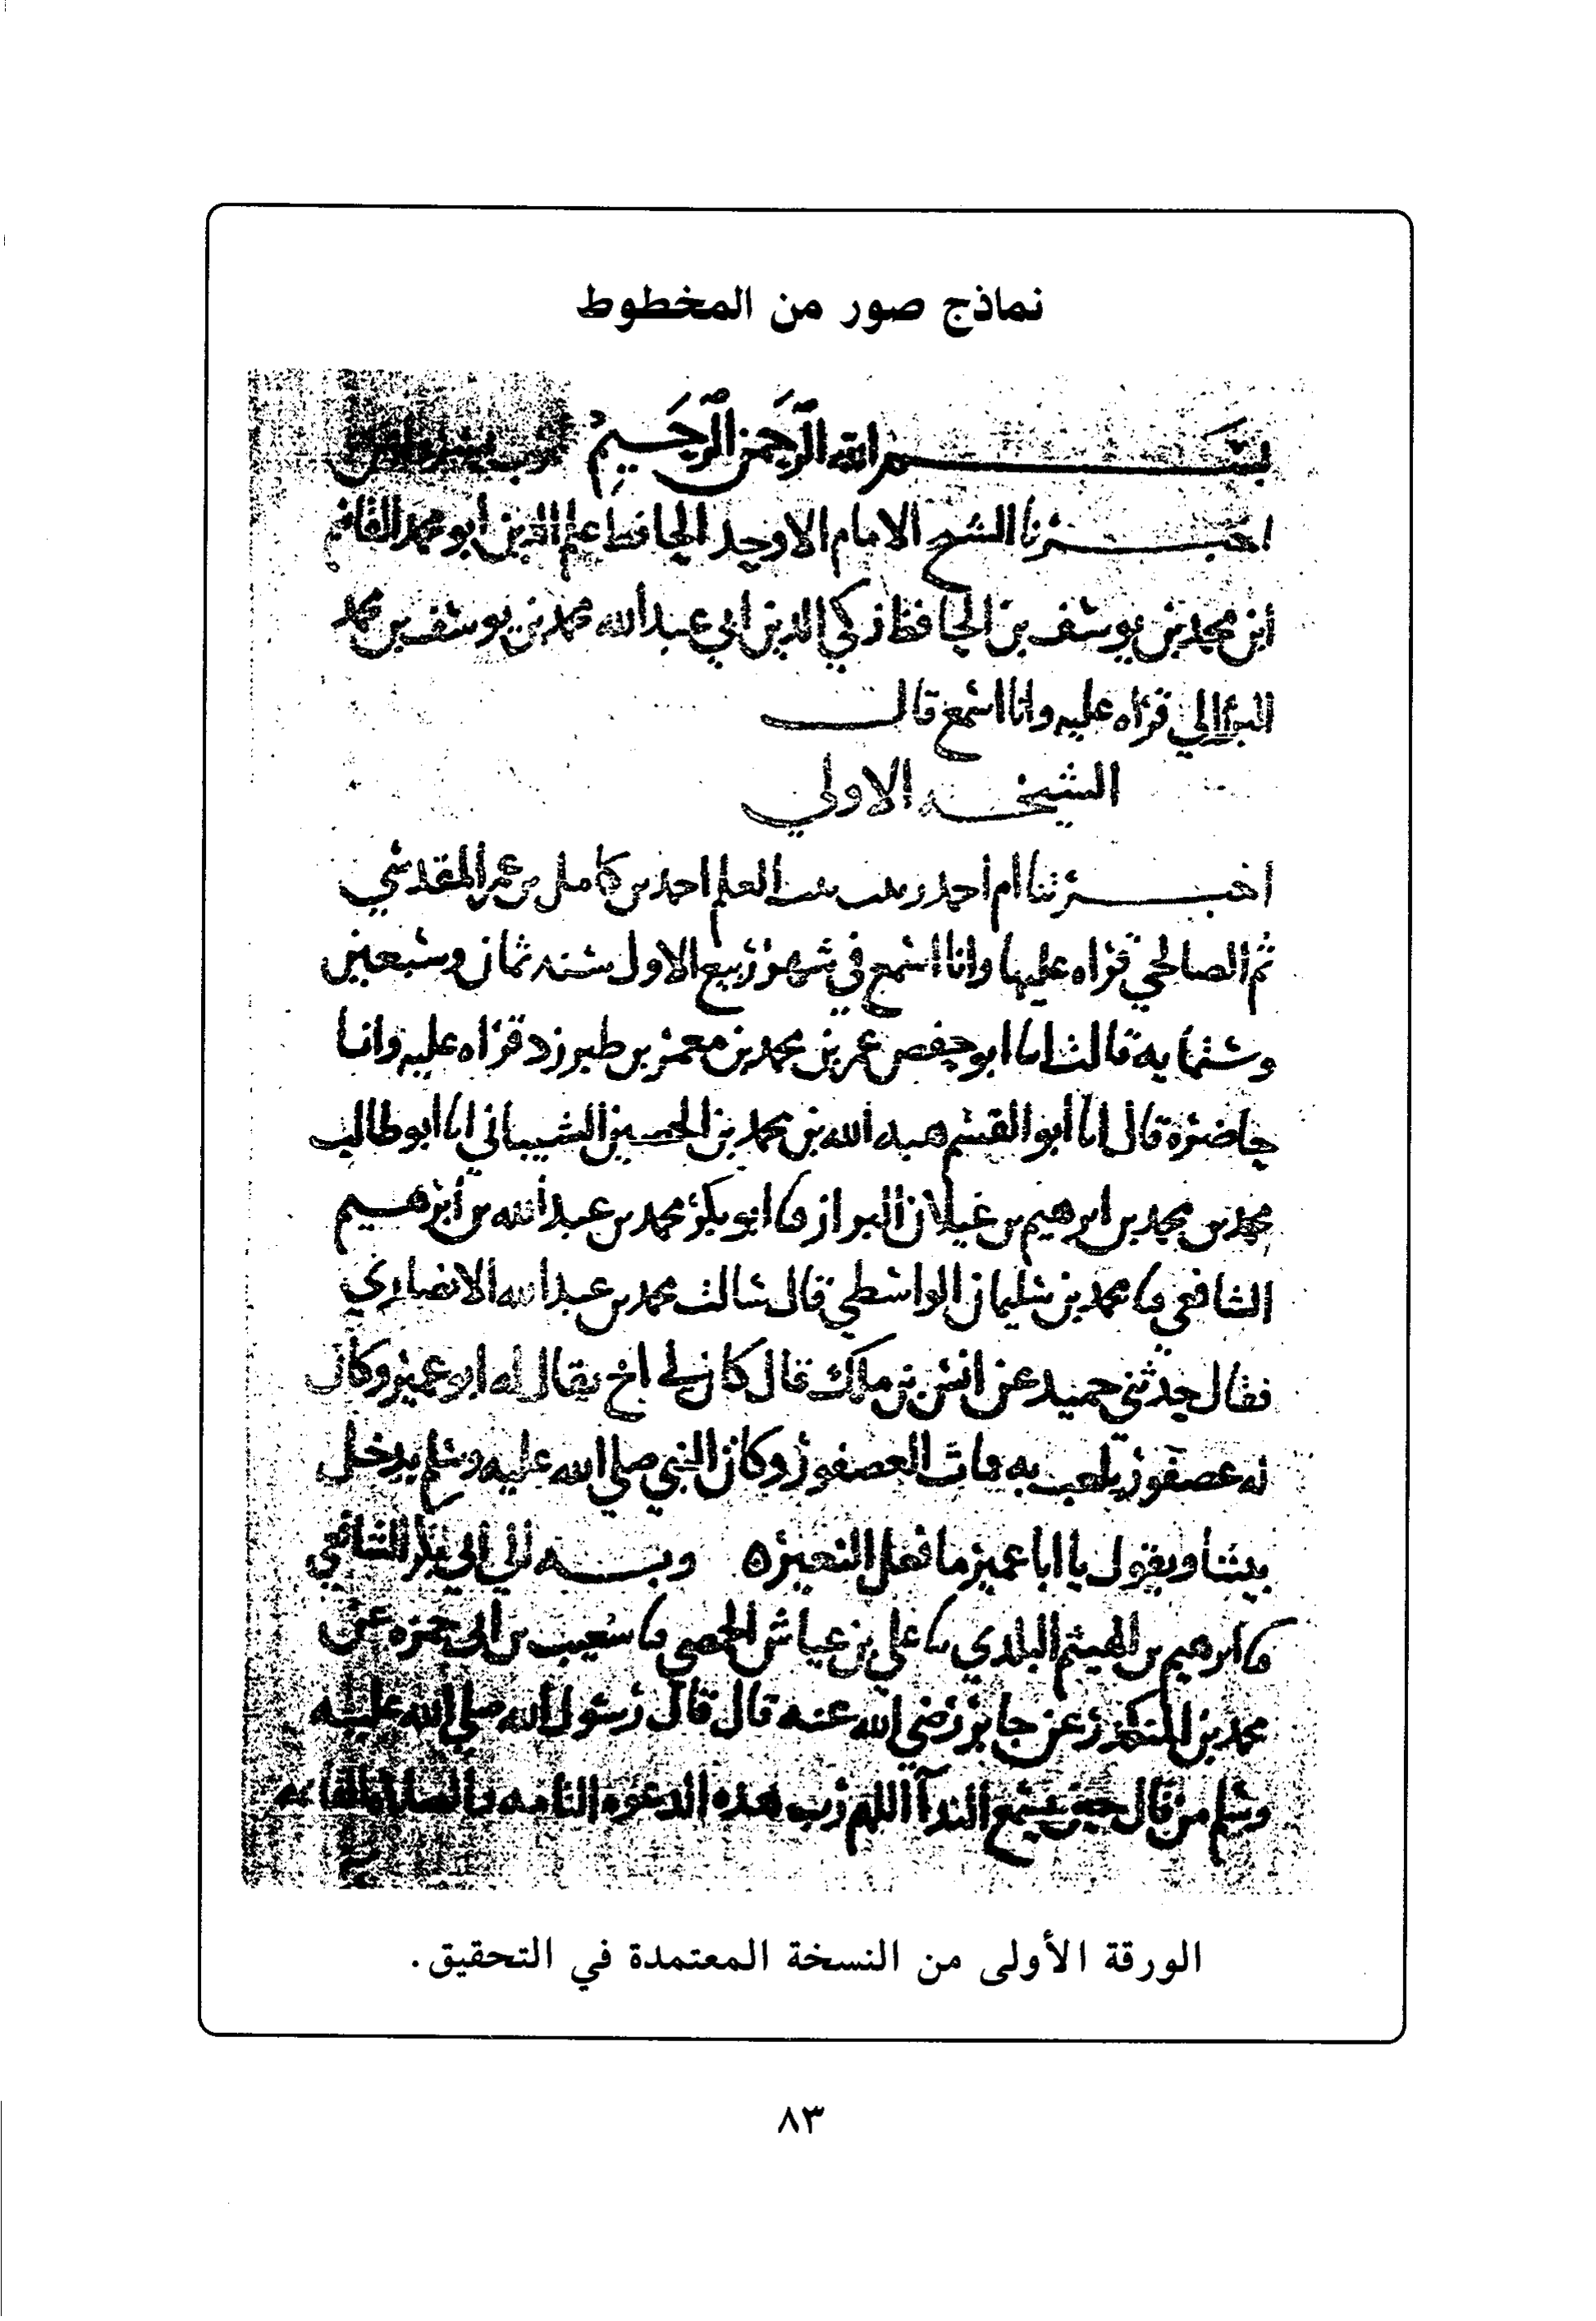 نماذج صور من المخطوط
بسم الله الرحمن الرحيم رب يسر
اخبرنا الشيخ الامام الاوحد الحافظ علم الدين ابو محمد القاسم
ابن محمد بن يوسف بن الحافظ زكي الدين ابي عبد الله محمد بن يوسف بن محمد
البرزالي قراه عليه وانا اسمع قال
الشيخه الاولي
اخبرتنا ام احمد زينب بنت العلم احمد بن كامل بن عمر المقدسي
ثم الصالحي قراه عليها وانا اسمع في شهر ربيع الاول سنه ثمان وسبعين
وستمايه قالت انا ابو حفص عمر بن محمد بن معمر بن طبرزد قراه عليه وانا
حاضره قال انا ابو القسم هبه الله بن محمد بن الحصين الشيباني انا ابو طالب
محمد بن محمد بن ابرهيم بن غيلان البزاز ثنا ابو بكر محمد بن عبد الله بن ابرهيم
الشافعي ثنا محمد بن سليمان الواسطي قال سالت محمد بن عبد الله الانصاري
فقال حدثني حميد عن انس بن ملك قال كان لي اخ يقال له ابو عمير وكان
له عصفور يلعب به فمات العصفور وكان النبي صلي الله عليه وسلم يدخل
بيتنا ويقول يا ابا عمير ما فعل النغير ه وبه الي ابي بكر الشافعي
ثنا ابرهيم بن الهيثم البلدي ثنا علي بن عياش الحمصي ثنا شعيب بن ابي حمزه عن
محمد بن المنكدر عن جابر رضي الله عنه قال قال رسول الله صلي الله عليه
وسلم من قال حين يسمع الندآ اللهم رب هذه الدعوه التامه والصلاه القائمه
الورقة الأولى من النسخة المعتمدة في التحقيق.
٨٣